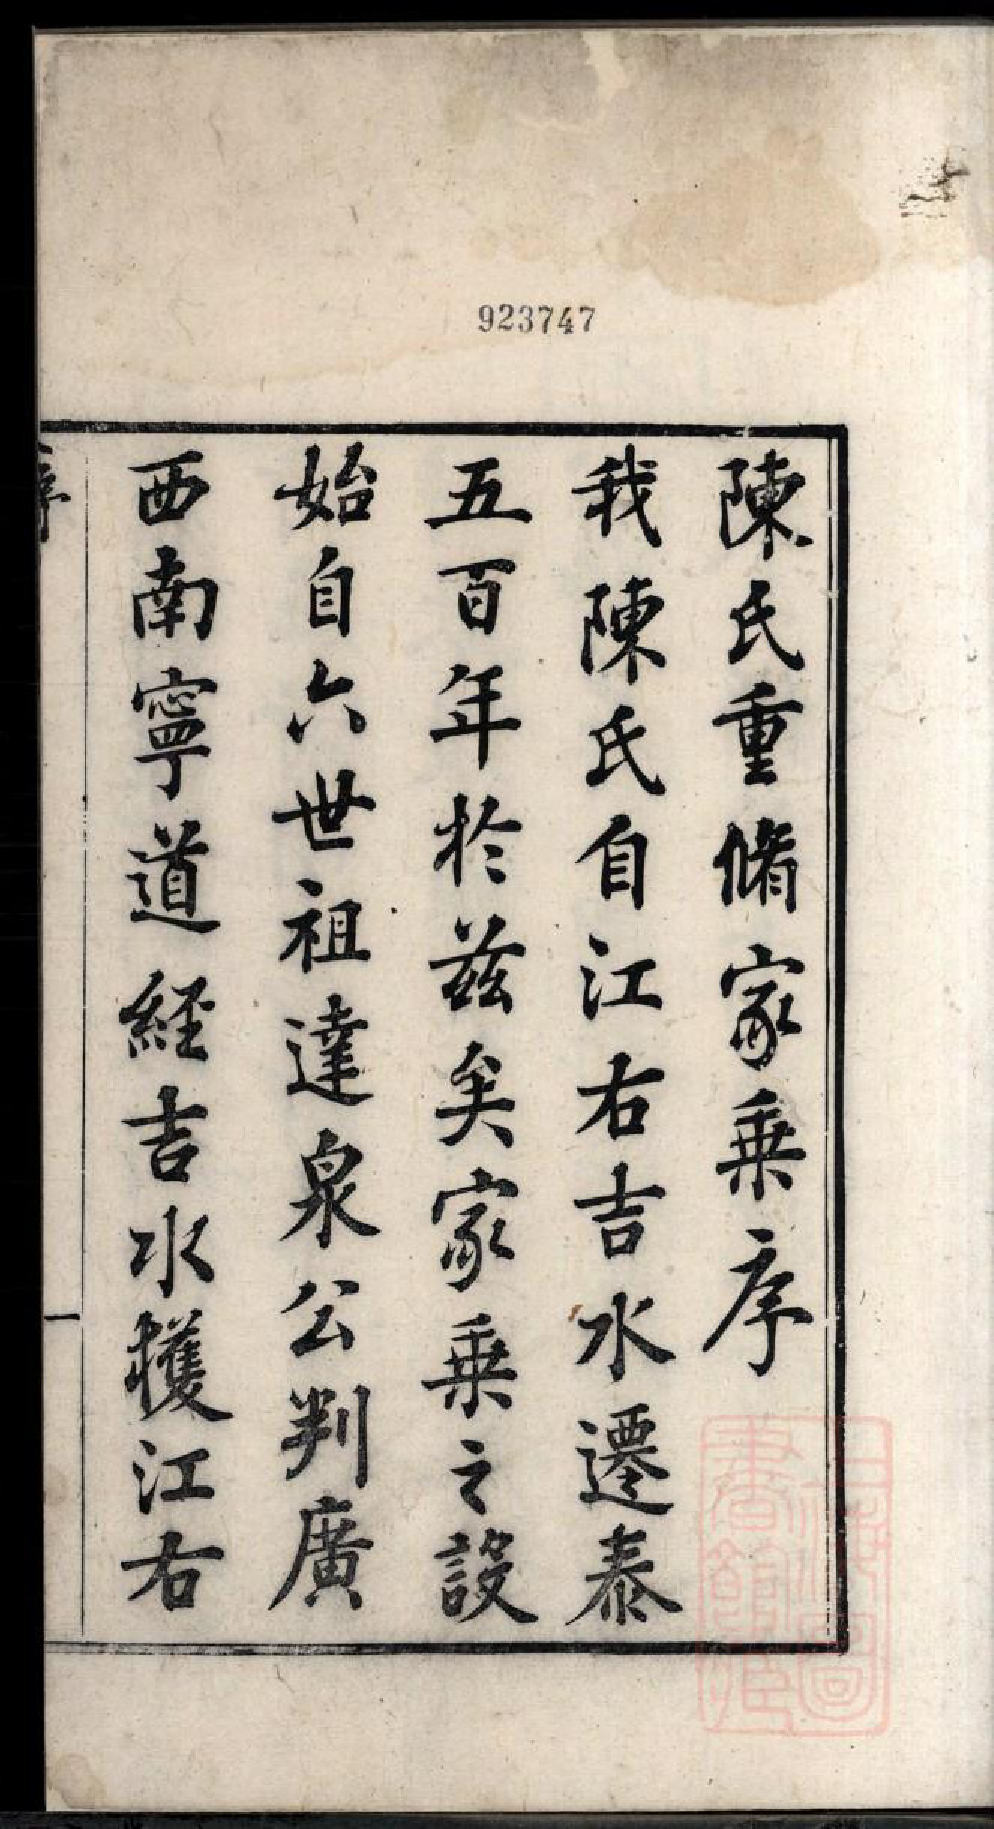 923747
陳氏重脩家乗序
我陳氏自江右吉水遷泰
五百年於茲矣家乗之設
始自六世祖達泉公判廣
西南寧道經吉水獲江右
序
一
上海圖書館藏